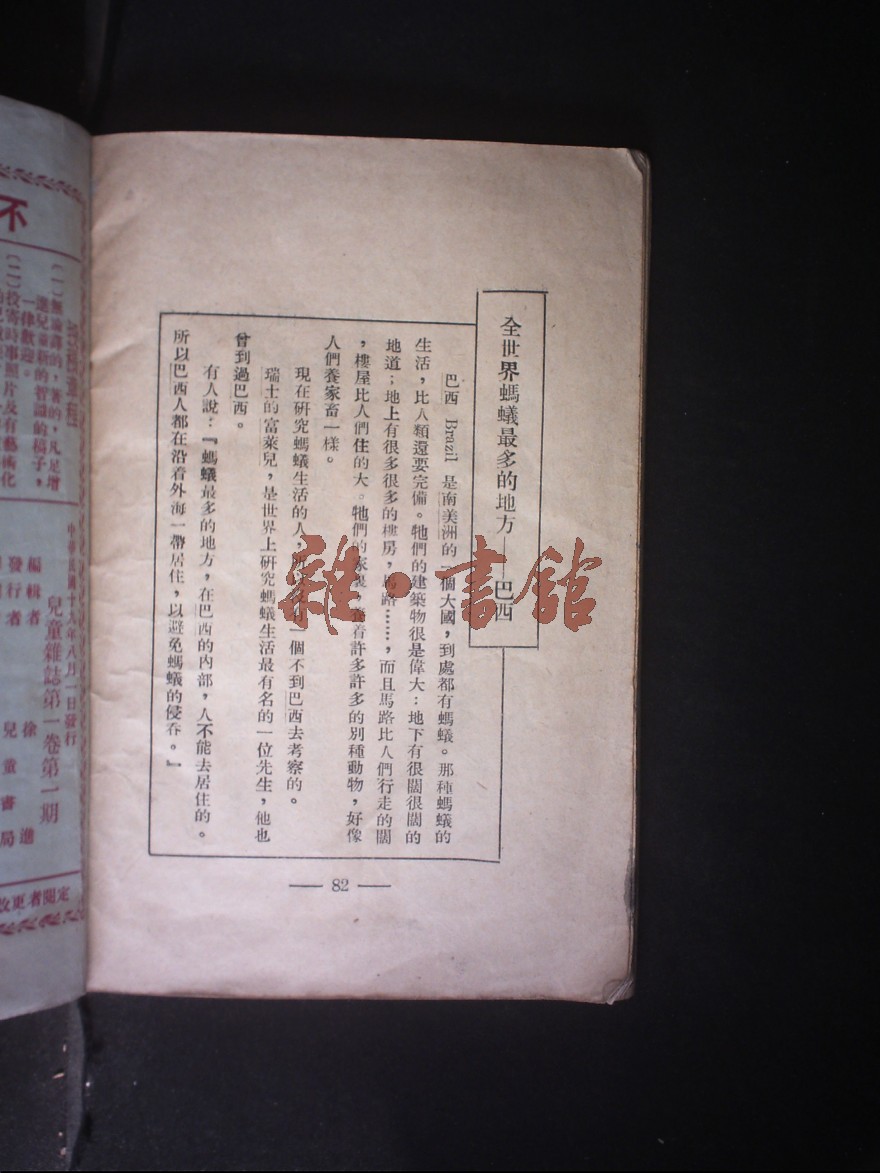 全世界螞蟻最多的地方——巴西
巴西 Brazil 是南美洲的一個大國，到處都有螞蟻。那種螞蟻的
生活，比人類還要完備。牠們的建築物很是偉大：地下有很闊很闊的
地道；地上有很多很多的樓房，馬路……，而且馬路比人們行走的闊
，樓屋比人們住的大。牠們的家裏，養着許多許多的別種動物，好像
人們養家畜一樣。
現在研究螞蟻生活的人，一個不到巴西去考察的。
瑞士的富萊兒，是世界上研究螞蟻生活最有名的一位先生，他也
曾到過巴西。
有人說：『螞蟻最多的地方，在巴西的內部，人不能去居住的。
所以巴西人都在沿着外海一帶居住，以避免螞蟻的侵吞。』
— 82 —
雜·書館
不
(一)無論譯的，著的，凡足增
進兒童新的智識的稿子，
一律歡迎。
(二)投寄時事照片及有藝術化
中華民國十九年八月一日發行
兒童雜誌第一卷第一期
編輯者 徐進
發行者 兒童書局